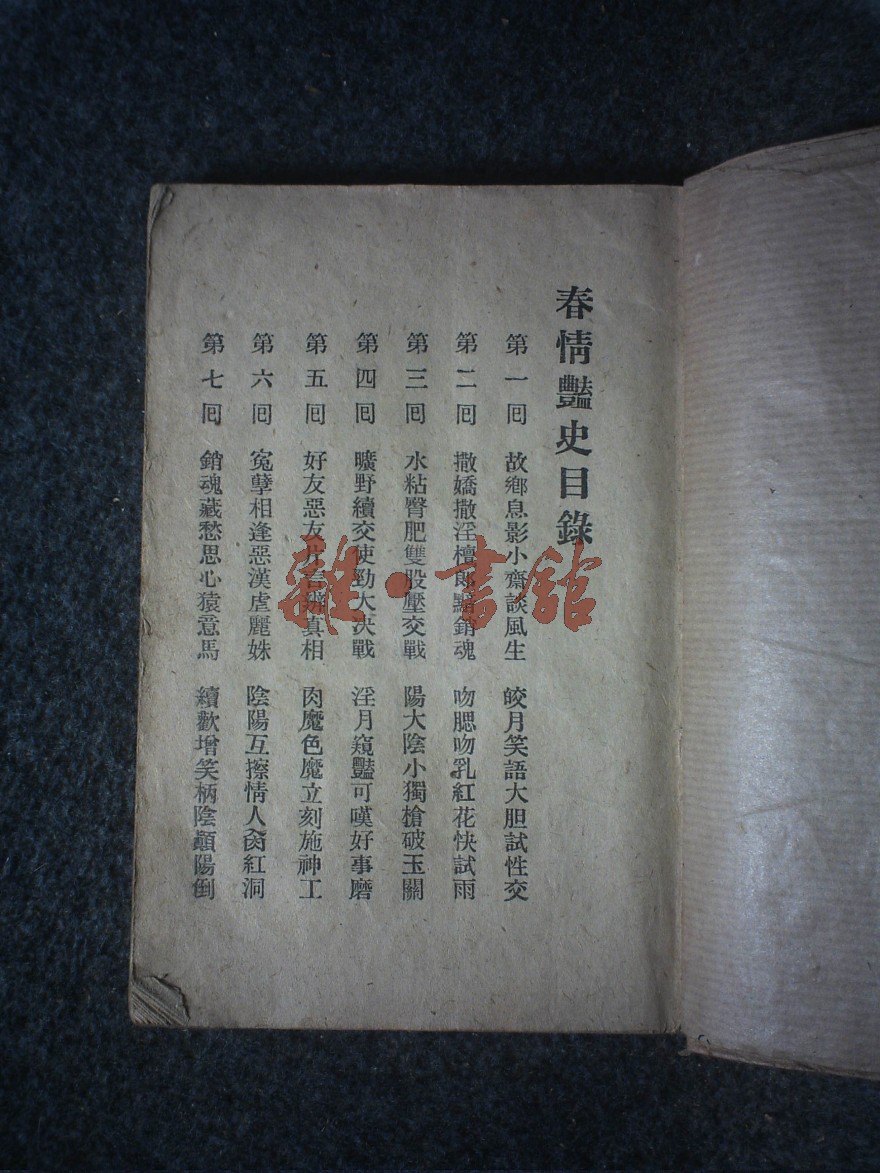 春情豔史目錄
第一囘 故鄉息影小齋談風生 皎月笑語大胆試性交
第二囘 撒嬌撒淫檀郎黯銷魂 吻腮吻乳紅花快試雨
第三囘 水粘臀肥雙股壓交戰 陽大陰小獨槍破玉關
第四囘 曠野續交使勁大决戰 淫月窺豔可嘆好事磨
第五囘 好友惡友片言辨真相 肉魔色魔立刻施神工
第六囘 寃孽相逢惡漢虐麗姝 陰陽互擦情人肏紅洞
第七囘 銷魂藏愁思心猿意馬 續歡增笑柄陰顚陽倒
雜·書館